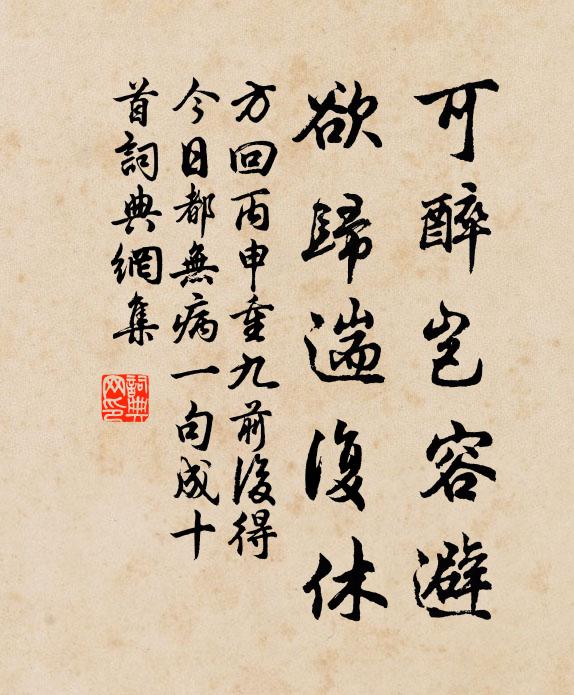 可醉豈容避
欲歸遄復休
方回丙申重九前後得
今日都無病一句成十
首詞典網集
詞典网印